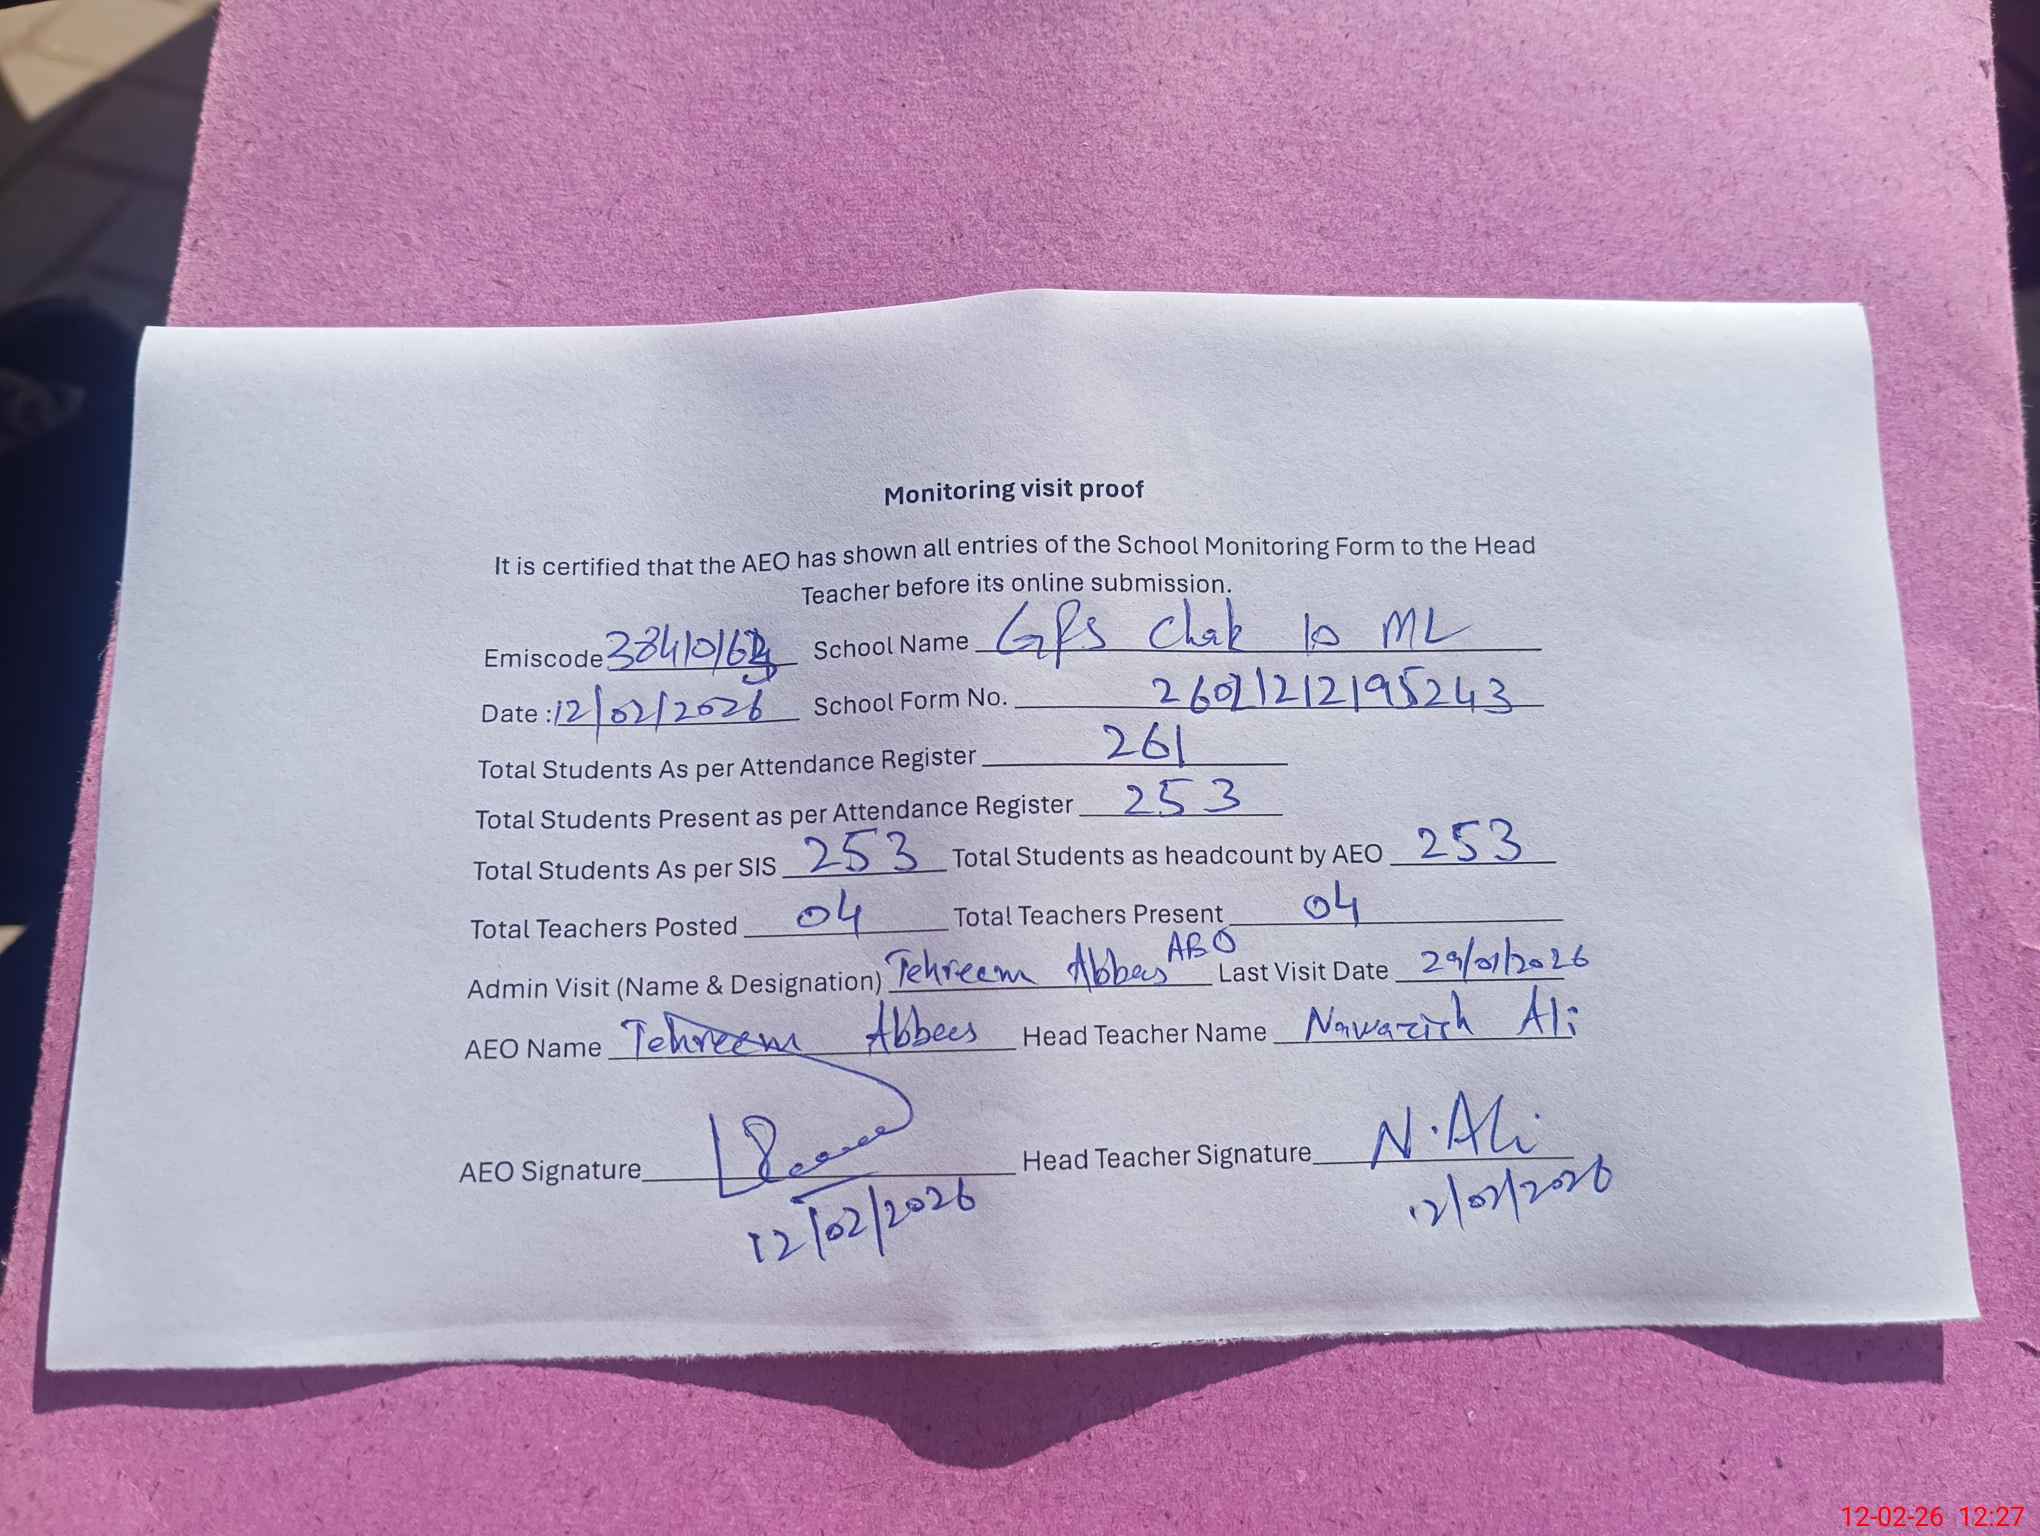 Monitoring visit proof
It is certified that the AEO has shown all entries of the School Monitoring Form to the Head
Teacher before its online submission.
Emiscode School Name GPS Chak 10 ML
Date : 12/02/2026 School Form No. 2602121295243
Total Students As per Attendance Register 261
Total Students Present as per Attendance Register 253
Total Students As per SIS 253 Total Students as headcount by AEO 253
Total Teachers Posted 04 Total Teachers Present 04
Admin Visit (Name & Designation) Tehreem Abbas AEO Last Visit Date 29/01/2026
AEO Name Tehreem Abbas Head Teacher Name Nawazish Ali
AEO Signature Head Teacher Signature N. Ali
12/02/2026 12/02/2026
12-02-26 12:27